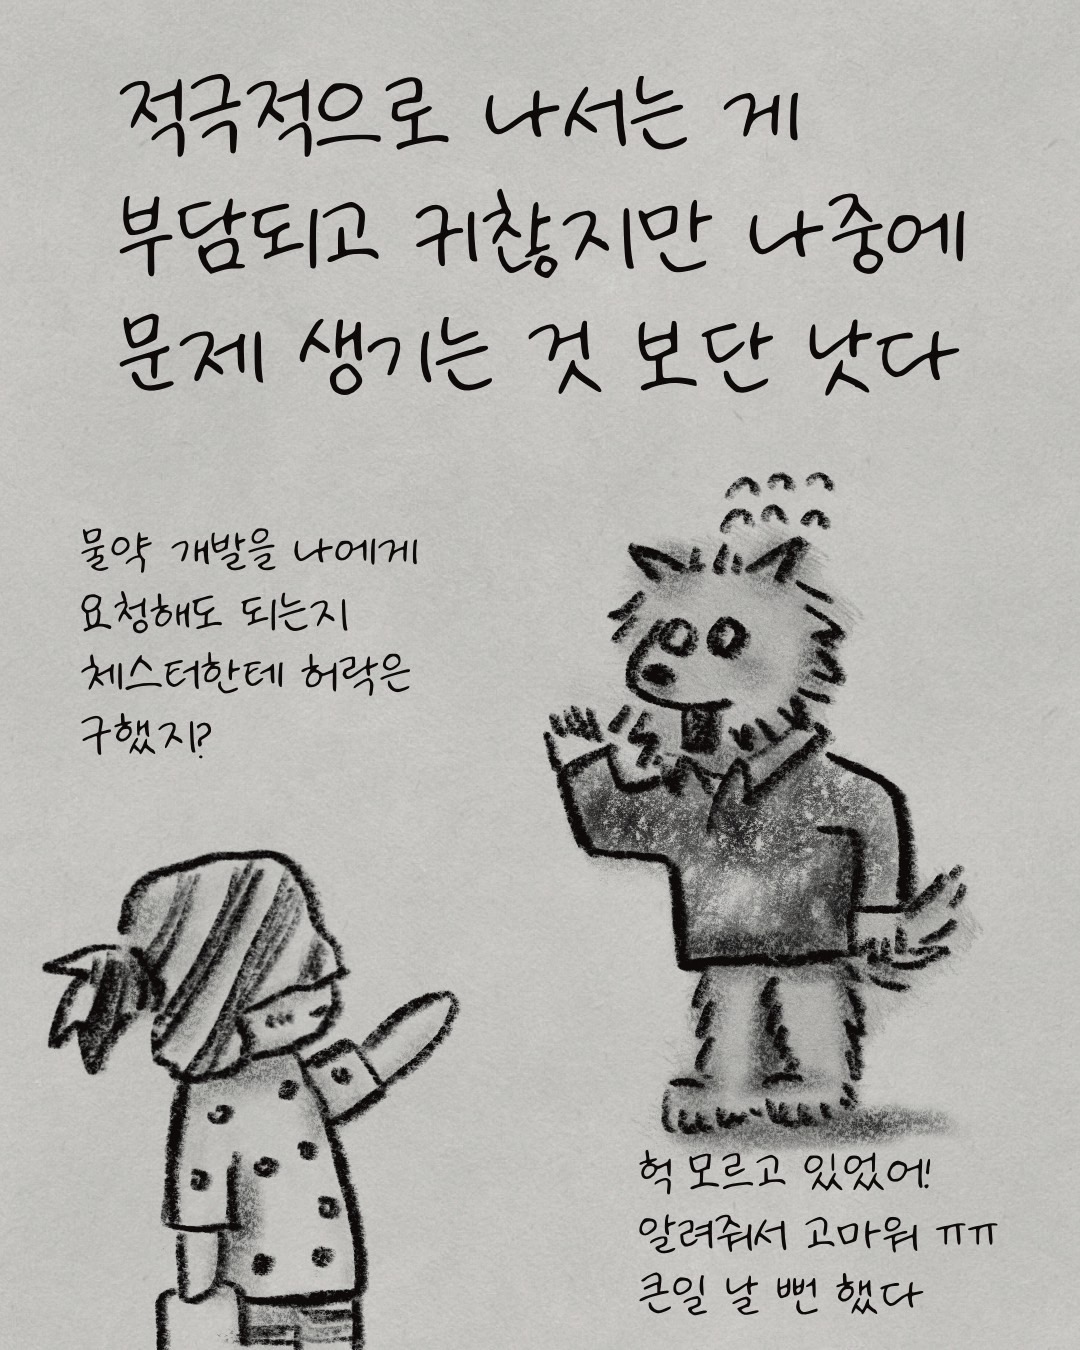 적극적으로 나서는 게
부담되고 귀찮지만 나중에
문제 생기는 것 보단 낫다
물약 개발을 나에게
요청해도 되는지
체스터한테 허락은
구했지?
헉 모르고 있었어!
알려줘서 고마워 ㅠㅠ
큰일 날 뻔 했다